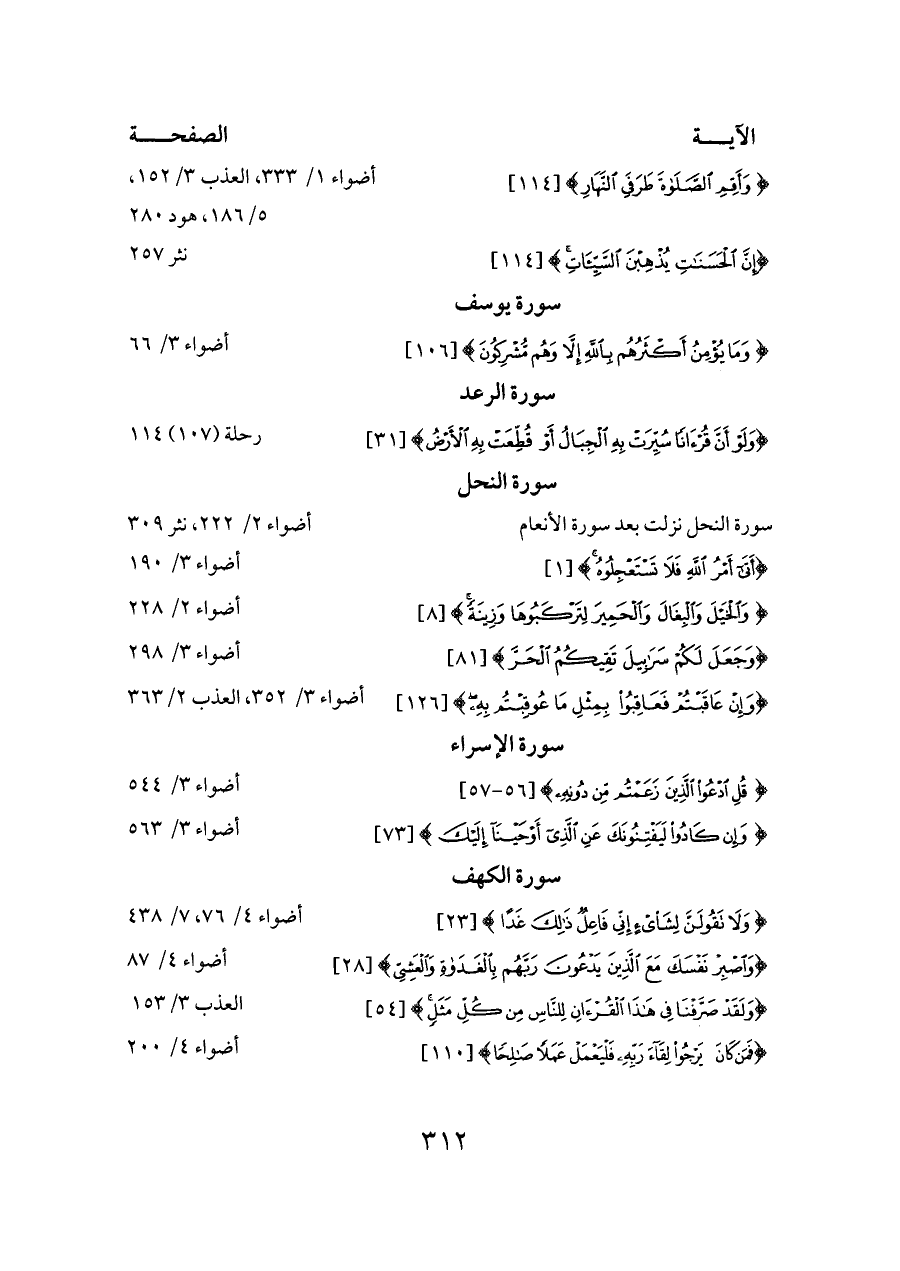 الآيـــة الصفحـــة
﴿ وَأَقِمِ ٱلصَّلَوٰةَ طَرَفَىِ ٱلنَّهَارِ﴾ [١١٤] أضواء ١/ ٣٣٣، العذب ٣/ ١٥٢،
٥/ ١٨٦، هود ٢٨٠
﴿إِنَّ ٱلْحَسَنَٰتِ يُذْهِبْنَ ٱلسَّيِّـَٔاتِۚ﴾ [١١٤] نثر ٢٥٧
سورة يوسف
﴿ وَمَا يُؤْمِنُ أَكْثَرُهُم بِٱللَّهِ إِلَّا وَهُم مُّشْرِكُونَ﴾ [١٠٦] أضواء ٣/ ٦٦
سورة الرعد
﴿وَلَوْ أَنَّ قُرْءَانًا سُيِّرَتْ بِهِ ٱلْجِبَالُ أَوْ قُطِّعَتْ بِهِ ٱلْأَرْضُ﴾ [٣١] رحلة (١٠٧) ١١٤
سورة النحل
سورة النحل نزلت بعد سورة الأنعام أضواء ٢/ ٢٢٢، نثر ٣٠٩
﴿أَتَىٰٓ أَمْرُ ٱللَّهِ فَلَا تَسْتَعْجِلُوهُۚ﴾ [١] أضواء ٣/ ١٩٠
﴿ وَٱلْخَيْلَ وَٱلْبِغَالَ وَٱلْحَمِيرَ لِتَرْكَبُوهَا وَزِينَةًۚ﴾ [٨] أضواء ٢/ ٢٢٨
﴿وَجَعَلَ لَكُمْ سَرَٰبِيلَ تَقِيكُمُ ٱلْحَرَّ ﴾ [٨١] أضواء ٣/ ٢٩٨
﴿وَإِنْ عَاقَبْتُمْ فَعَاقِبُوا۟ بِمِثْلِ مَا عُوقِبْتُم بِهِۦۖ﴾ [١٢٦] أضواء ٣/ ٣٥٢، العذب ٢/ ٣٦٣
سورة الإسراء
﴿ قُلِ ٱدْعُوا۟ ٱلَّذِينَ زَعَمْتُم مِّن دُونِهِۦ﴾ [٥٦-٥٧] أضواء ٣/ ٥٤٤
﴿ وَإِن كَادُوا۟ لَيَفْتِنُونَكَ عَنِ ٱلَّذِىٓ أَوْحَيْنَآ إِلَيْكَ ﴾ [٧٣] أضواء ٣/ ٥٦٣
سورة الكهف
﴿ وَلَا تَقُولَنَّ لِشَا۟ىْءٍ إِنِّى فَاعِلٌ ذَٰلِكَ غَدًا ﴾ [٢٣] أضواء ٤/ ٧٦، ٧/ ٤٣٨
﴿وَٱصْبِرْ نَفْسَكَ مَعَ ٱلَّذِينَ يَدْعُونَ رَبَّهُم بِٱلْغَدَوٰةِ وَٱلْعَشِىِّ﴾ [٢٨] أضواء ٤/ ٨٧
﴿وَلَقَدْ صَرَّفْنَا فِى هَٰذَا ٱلْقُرْءَانِ لِلنَّاسِ مِن كُلِّ مَثَلٍۚ﴾ [٥٤] العذب ٣/ ١٥٣
﴿فَمَن كَانَ يَرْجُوا۟ لِقَآءَ رَبِّهِۦ فَلْيَعْمَلْ عَمَلًا صَٰلِحًا﴾ [١١٠] أضواء ٤/ ٢٠٠
٣١٢